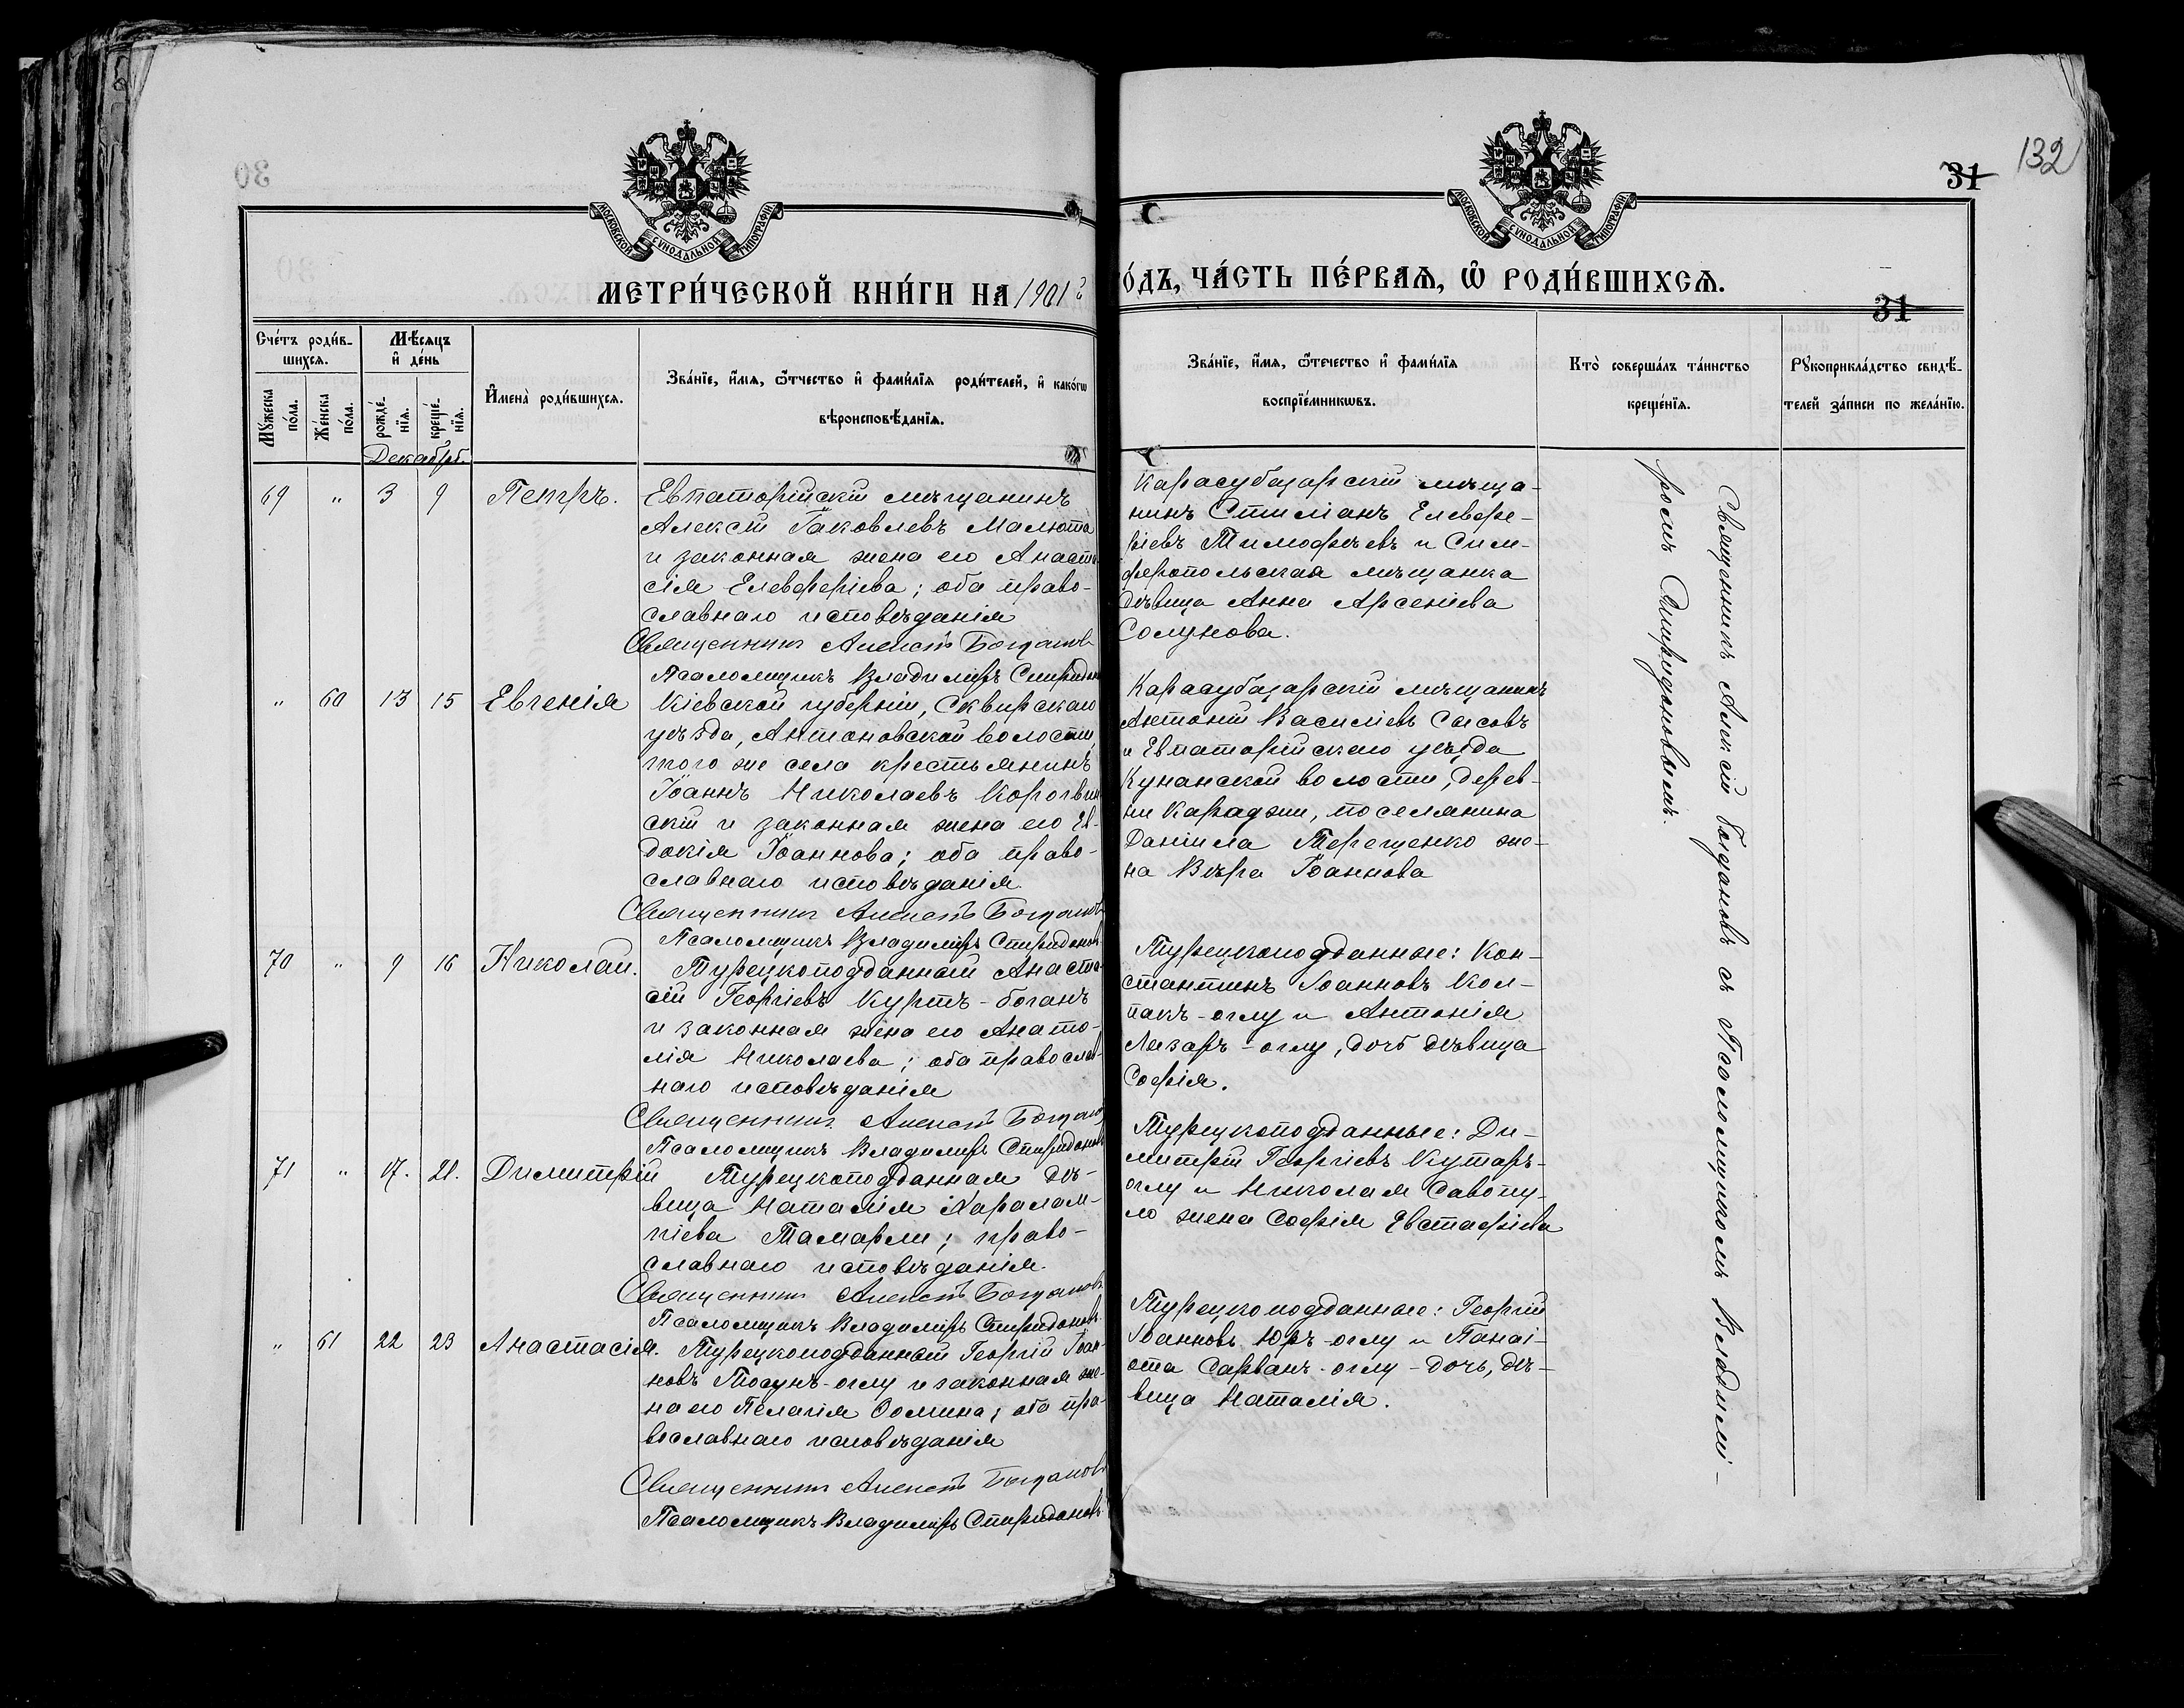 132
31
МОСКОВСКОЙ СѴНОДАЛЬНОЙ ТИПОГРАФІИ
МОСКОВСКОЙ СѴНОДАЛЬНОЙ ТИПОГРАФІИ
МЕТРИ́ЧЕСКОЙ КНИ́ГИ НА 1901 г
О́ДЪ, ЧА́СТЬ ПЕ́РВАѦ, Ѿ РОДИ́ВШИХСѦ.
31
Сче́тъ роди́в-
шихсѧ.
Му́жеска по́ла.
Же́нска по́ла.
Мѣ́сяцъ
и де́нь
рожде́-
нїѧ.
креще́-
нїѧ.
Декабрь.
Имена̀ роди́вшихсѧ.
Зва́нїе, и́мѧ, ѻ҆́тчество и фами́лїѧ роди́телей, и како́гѡ
вѣроисповѣ́данїѧ.
Зва́нїе, и́мѧ, ѻ҆те́чество и фами́лїѧ
воспрїе́мникѡвъ.
Кто̀ соверша́лъ та́инство
креще́нїѧ.
Рꙋкоприкла́дство свидѣ́-
телей за́писи по жела́нїю.
69 " 3 9 Петръ.
Евпаторійскій мѣщанинъ
Алексѣй Іаковлевъ Малюта
и законная жена его Анаста
сія Елевферіева; оба право-
славнаго исповѣданія
Священникъ Алексѣй Богданов
Псаломщикъ Владиміръ Спиридон
Карасубазарскій мѣща-
нинъ Стиліанъ Елевфе-
ріевъ Тимофѣевъ и Сим-
феропольская мѣщанка
дѣвица Анна Арсеніева
Солунова.
" 60 13 15 Евгенія
Кіевской губерніи, Сквирскаго
уѣзда, Антоновской волости,
того же села крестьянинъ
Іоаннъ Николаевъ
скій и законная жена его Ев-
докія Іоаннова; оба право-
славнаго исповѣданія.
Священникъ Алексѣй Богданов
Псаломщикъ Владиміръ Спиридонов
Карасубазарскій мѣщанинъ
Антоній Василіевъ Сысовъ
и Евпаторійскаго уѣзда
Кунанской волости, дерев-
ни Караджи, поселянина
Даніила Терещенко же-
на Вѣра Іоаннова
70 " 9 16 Николай.
Турецкоподданный Анаста-
сій Георгіевъ Куртъ-боганъ
и законная жена его Анато-
лія Николаева; оба православ-
наго исповѣданія
Священникъ Алексѣй Богданов
Псаломщикъ Владиміръ Спиридонов
Турецкоподданные: Кон-
стантинъ Іоанновъ Кол-
пакъ-оглу и Антонія
Лазаръ-оглу, дочь дѣвица
Софія.
71 " 17. 21. Димитрій
Турецкоподданная дѣ-
вица Наталія Харалам-
піева Тамарли; право-
славнаго исповѣданія.
Священникъ Алексѣй Богданов
Псаломщикъ Владиміръ Спиридонов
Турецкоподданные: Ди-
митрій Георгіевъ Кутаръ-
оглу и Николая Савопу-
ло жена Софія Евстафіева
" 61 22 23 Анастасія.
Турецкоподданный Георгій Іоан-
новъ Тосунъ-оглу и законная же-
на его Пелагія Ѳомина; оба пра-
вославнаго исповѣданія
Священникъ Алексѣй Богданов
Псаломщикъ Владиміръ Спиридонов
Турецкоподданные: Георгій
Іоанновъ Юръ-оглу и Панаі-
ота Сарванъ-оглу-дочь, дѣ-
вица Наталія.
Священникъ Алексѣй Богдановъ съ Псаломщикомъ Владимі-
ромъ Спиридоновымъ.